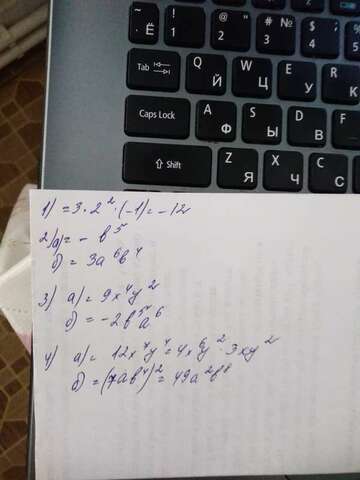 ~ . Ё
! 1
@ " 2
# № 3
$ ; 4
% 5
Tab
Q Й
W Ц
E У
R К
Caps Lock
A Ф
S Ы
D В
F
Shift
Z Я
X Ч
C С
1) = 3 · 2² · (-1) = -12
2) а) = - b⁵
б) = 3a⁶b⁴
3) а) = 9x⁴y²
б) = -2b⁵a⁶
4) а) = 12x⁷y⁴ = 4x⁶y² · 3xy²
б) = (7ab⁴)² = 49a²b⁸